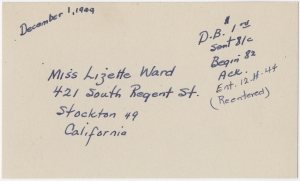 December 1, 1909
D.B. 1
Sent 81c
Begin 82
Ack.
Ent. 12-11-44
(Reentered)
Miss Lizette Ward
421 South Regent St.
Stockton 49
California